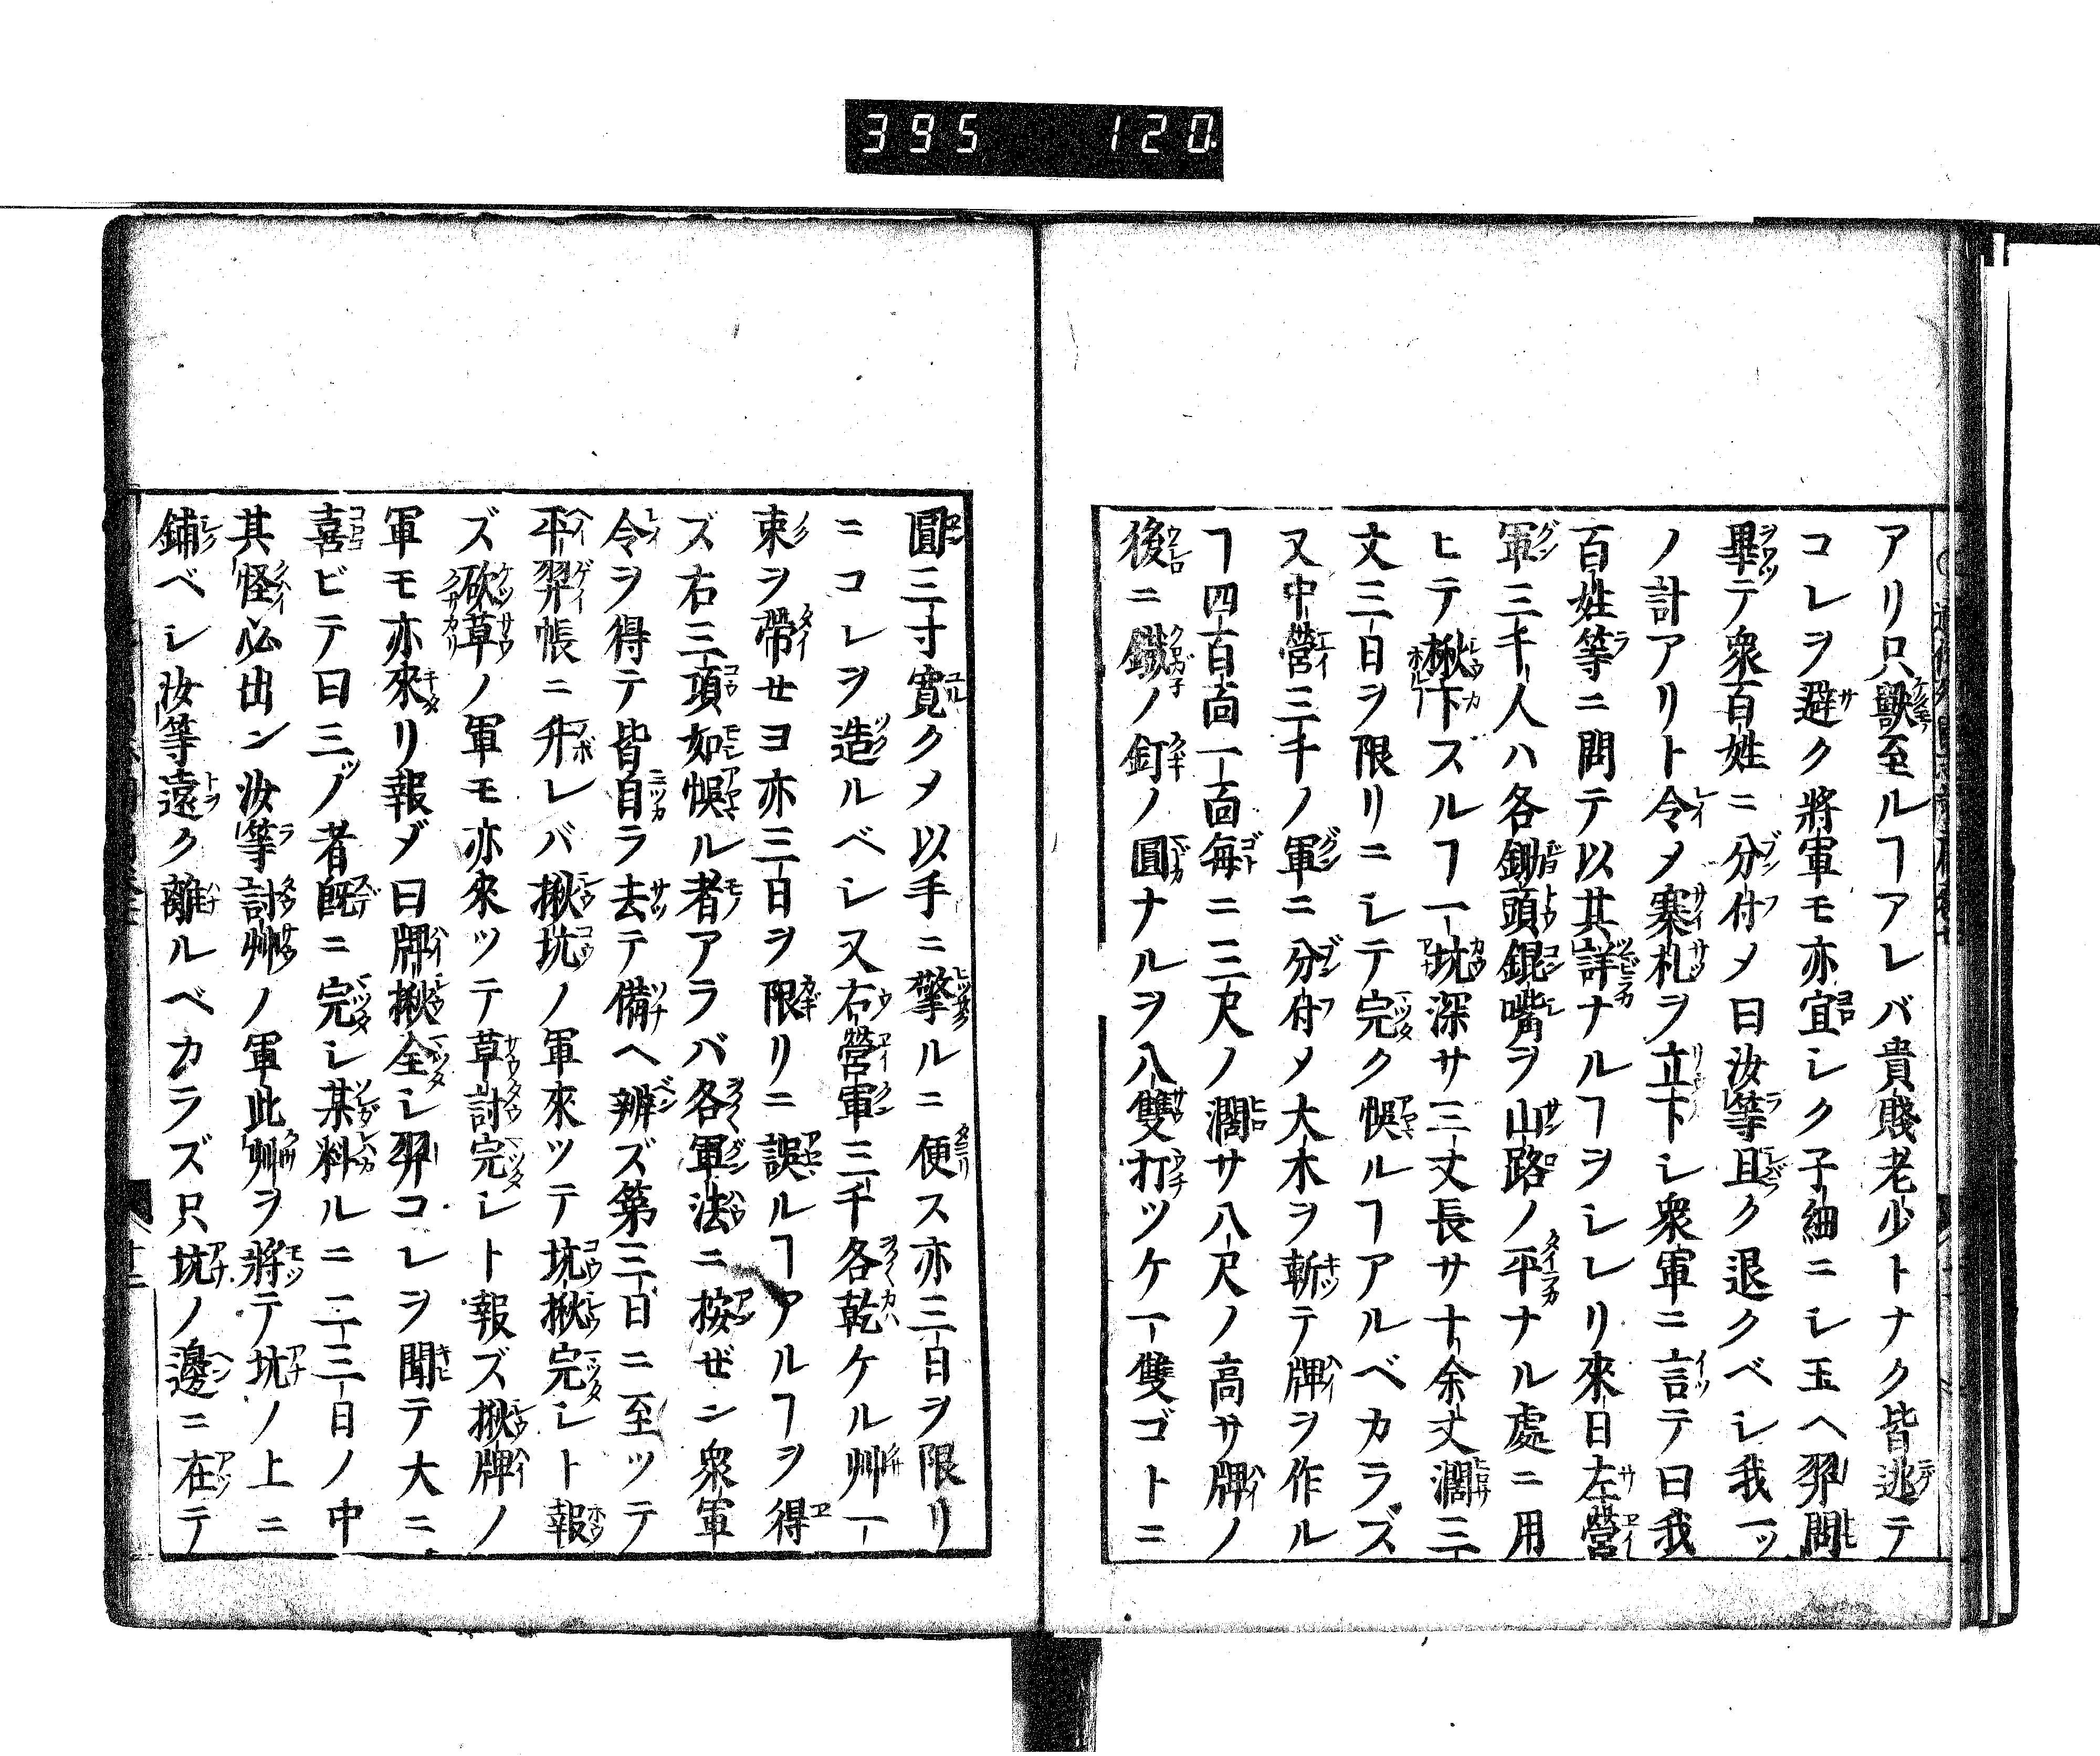 395 120
アリ只獸至ルヿアレバ貴賤老少トナク皆逃テ
コレヲ避ク將軍モ亦宜シク子細ニシ玉ヘ羿問
畢テ衆百姓ニ分付メ曰汝等且ク退クベシ我一ッ
ノ計アリト令メ寨札ヲ立下シ衆軍ニ言テ曰我
百姓等ニ問テ以其詳ナルヿヲシレリ來日左營
軍三千人ハ各鋤頭錕嘴ヲ山路ノ平ナル處ニ用
ヒテ楸下ズルヿ一坑深サ三丈長サ十余丈濶三
丈三日ヲ限リニシテ完ク悞ルヿアルベカラズ
又中營三千ノ軍ニ分付メ大木ヲ斬テ牌ヲ作ル
ヿ四百面一面毎ニ三尺ノ濶サ八尺ノ高サ牌ノ
後ニ鐵ノ釘ノ圓ナルヲ八雙打ツケ一雙ゴトニ
圓三寸寛クメ以手ニ擎ルニ便ス亦三日ヲ限リ
ニコレヲ造ルベシ又右營軍三千各乾ケル艸一
束ヲ帶セヨ亦三日ヲ限リニ誤ルヿアルヿヲ得
ズ右三項如悞ル者アラバ各軍法ニ按ぜン衆軍
令ヲ得テ皆自ラ去テ備ヘ辨ズ第三日ニ至ッテ
平羿帳ニ升レバ楸坑ノ軍來ツテ坑楸完シト報
ズ砍草ノ軍モ亦來ツテ草討完シト報ズ楸牌ノ
軍モ亦來リ報ダ曰牌楸全シ羿コレヲ聞テ大ニ
喜ビテ曰三ノ者既ニ完シ某料ルニ二三日ノ中
其怪必出ン汝等討艸ノ軍此艸ヲ將テ坑ノ上ニ
鋪ベシ汝等遠ク離ルベカラズ只坑ノ邊ニ在テ
十二